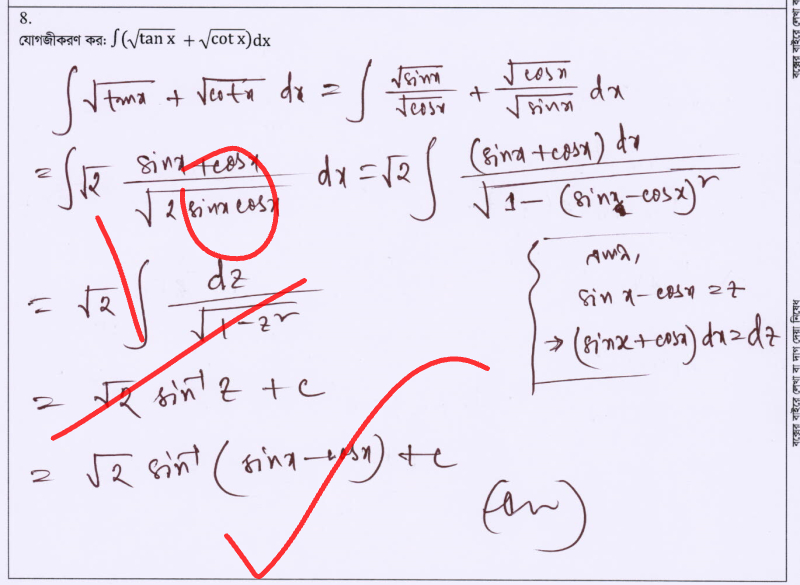 8.
যোগজীকরণ কর: ∫(√tan x + √cot x)dx
∫ √tanx + √cotx dx = ∫ √sinx/√cosx + √cosx/√sinx dx
= ∫√2 (sinx+cosx)/√(2 sinx cosx) dx = √2 ∫ (sinx+cosx) dx/√(1 - (sinx-cosx)²)
= √2 ∫ dz/√(1-z²)
ধরি,
sin x - cosx = z
⇒ (sinx + cosx) dx = dz
= √2 sin⁻¹ z + c
= √2 sin⁻¹ (sinx - cosx) + c
(Ans)
বক্সের বাইরে লেখা বা দাগ দেয়া নিষেধ